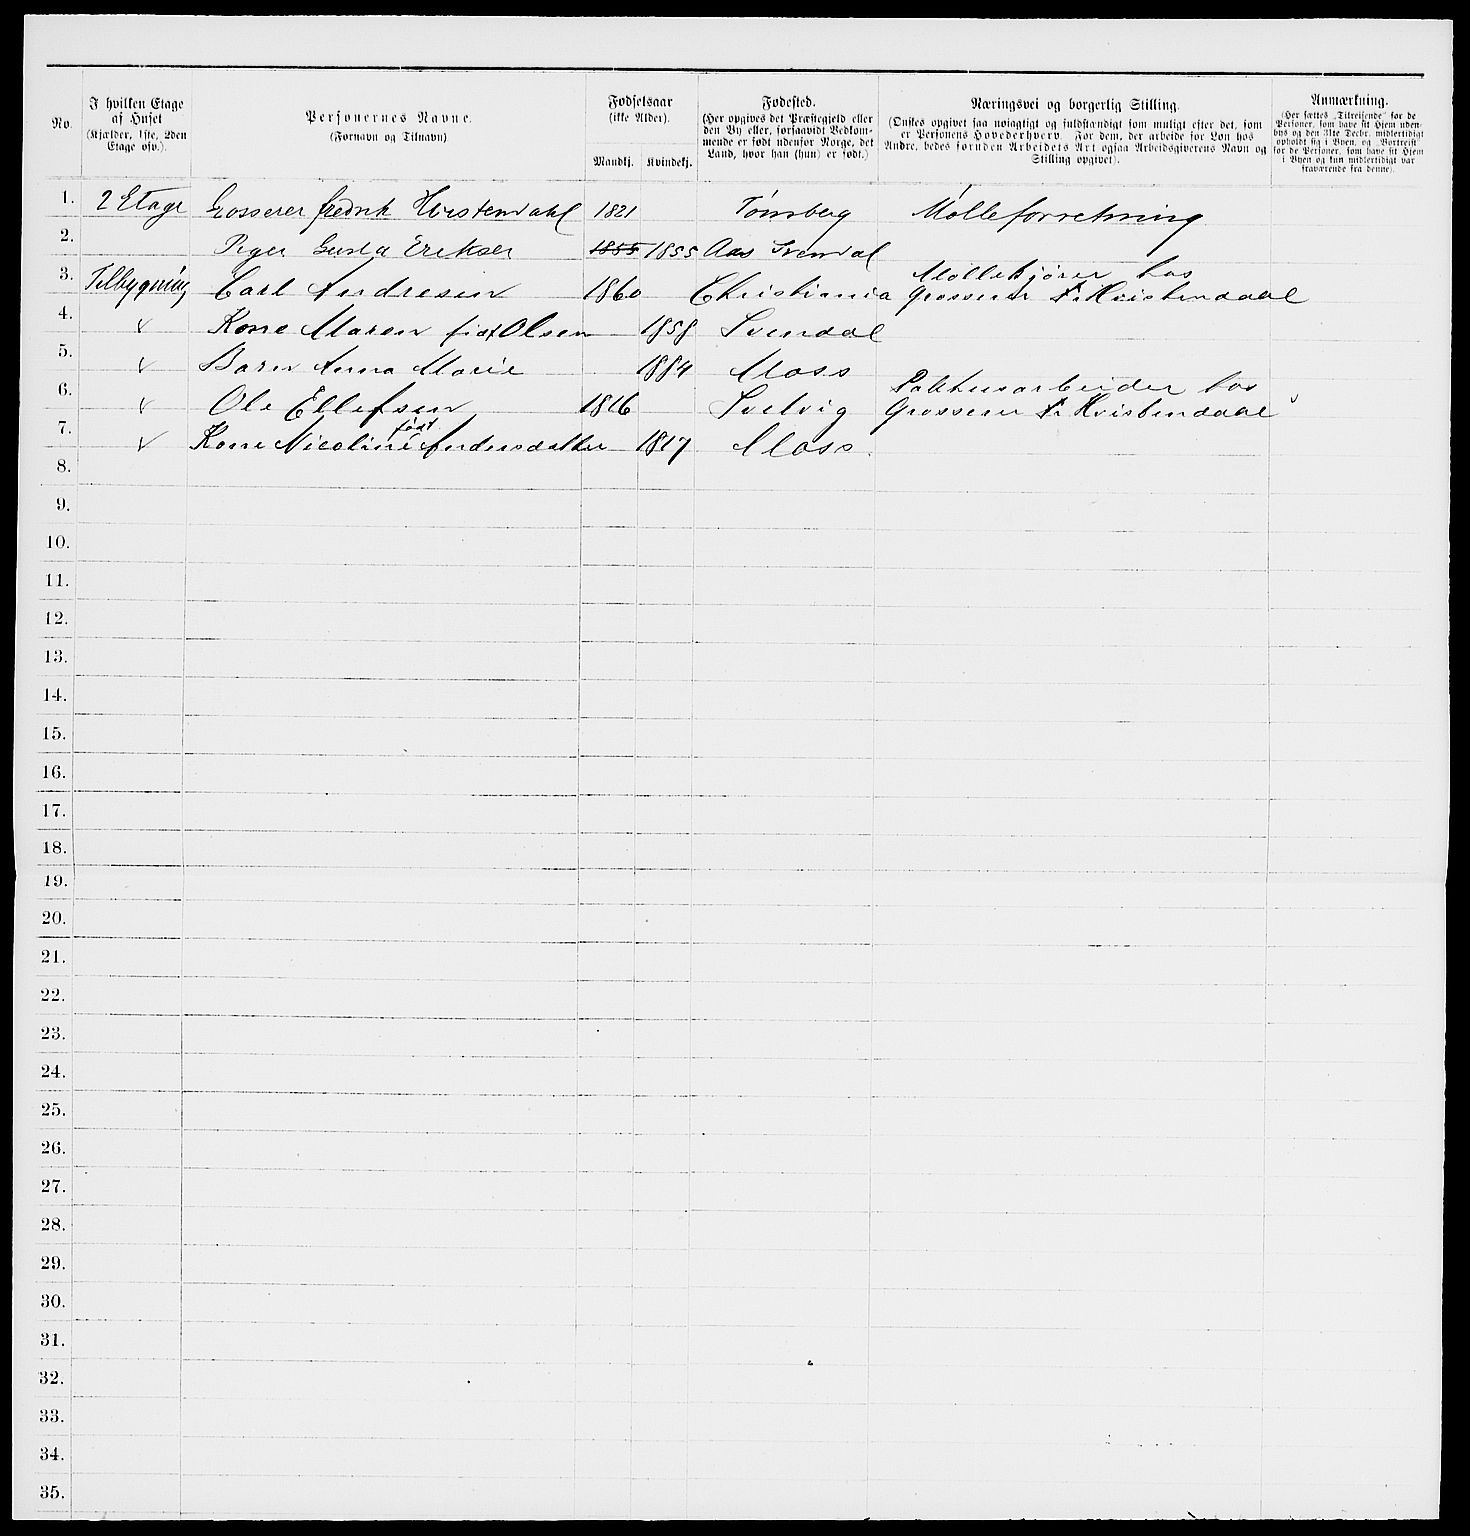 No.
I hvilken Etage
af Huset
(Kjælder, 1ste, 2den
Etage osv.).
Personernes Navne.
(Fornavn og Tilnavn)
Fødselsaar
(ikke Alder).
Mandkj.
Kvindekj.
Fødested.
(Her opgives det Præstegjeld eller
den By eller, forsaavidt Vedkom-
mende er født udenfor Norge, det
Land, hvor han (hun) er født.)
Næringsvei og borgerlig Stilling.
(Ønskes opgivet saa nøiagtigt og fuldstændigt som muligt efter det, som
er Personens Hovederhverv. For dem, der arbeide for Løn hos
Andre, bedes foruden Arbeidets Art ogsaa Arbeidsgiverens Navn og
Stilling opgivet).
Anmærkning.
(Her sættes „Tilreisende" for de
Personer, som have sit Hjem uden-
bys og den 31te Decbr. midlertidigt
opholdt sig i Byen, og „Bortreist"
for de Personer, som have sit Hjem
i Byen og kun midlertidigt var
fraværende fra denne).
1. 2 Etage Grosserer Fredrik Hvistendahl 1821 Tønsberg Mølleforretning
2. Piger Gusta Eriksen 1855 1855 Aas Svendal
3. Tilbygning Carl Andresen 1860 Christiania Møllekjører hos
Grosserer Fr Hvistendaal
4. v Kone Maren født Olsen 1858 Svendal
5. v Barn Anna Marie 1884 Moss
6. v Ole Ellefsen 1816 Svelvig Pakhusarbeider hos
Grosserer Fr Hvistendaal
7. v Kone Nicoline født Andersdatter 1817 Moss.
8.
9.
10.
11.
12.
13.
14.
15.
16.
17.
18.
19.
20.
21.
22.
23.
24.
25.
26.
27.
28.
29.
30.
31.
32.
33.
34.
35.